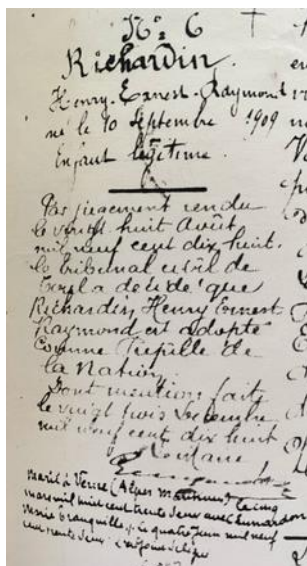 N° 6
Richardin
Henry-Ernest-Raymond
né le 10 Septembre 1909
Enfant légitime.
Par jugement rendu
le vingt huit Août
mil neuf cent dix huit.
le tribunal civil de
a décidé que
Richardin Henry Ernest
Raymond est adopté
Comme Pupille de
la Nation.
Dont mention faite
le vingt trois Décembre
mil neuf cent dix huit
Marié à Vence (Alpes Maritimes) le cinq
mars mil huit cent trente deux avec
Marie le quatre Juin mil neuf
cent trente deux